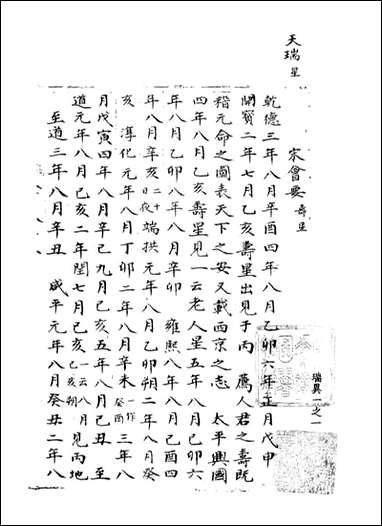 天瑞星
宋會要 壽星
乾德三年八月辛酉四年八月乙卯六年正月戊申
開寶二年七月乙亥壽星出見于丙 薦人君之壽既
稽元命之圖表天下之安又載西京之志 太平興國
四年八月乙亥壽星見一云老人星五年八月己卯六
年八月乙卯八年八月辛卯 雍熙八年八月己酉四
年八月辛亥二十日夜端拱元年八月乙卯朔二年八月癸
亥 淳化元年八月丁卯二年八月辛未一作癸酉三年八
月戊寅四年八月辛巳九月己亥五年八月己丑 至
道元年八月己亥二年閏七月己亥一云八月己亥朔見丙地
至道三年八月辛丑 咸平元年八月癸丑二年八
瑞異一之一